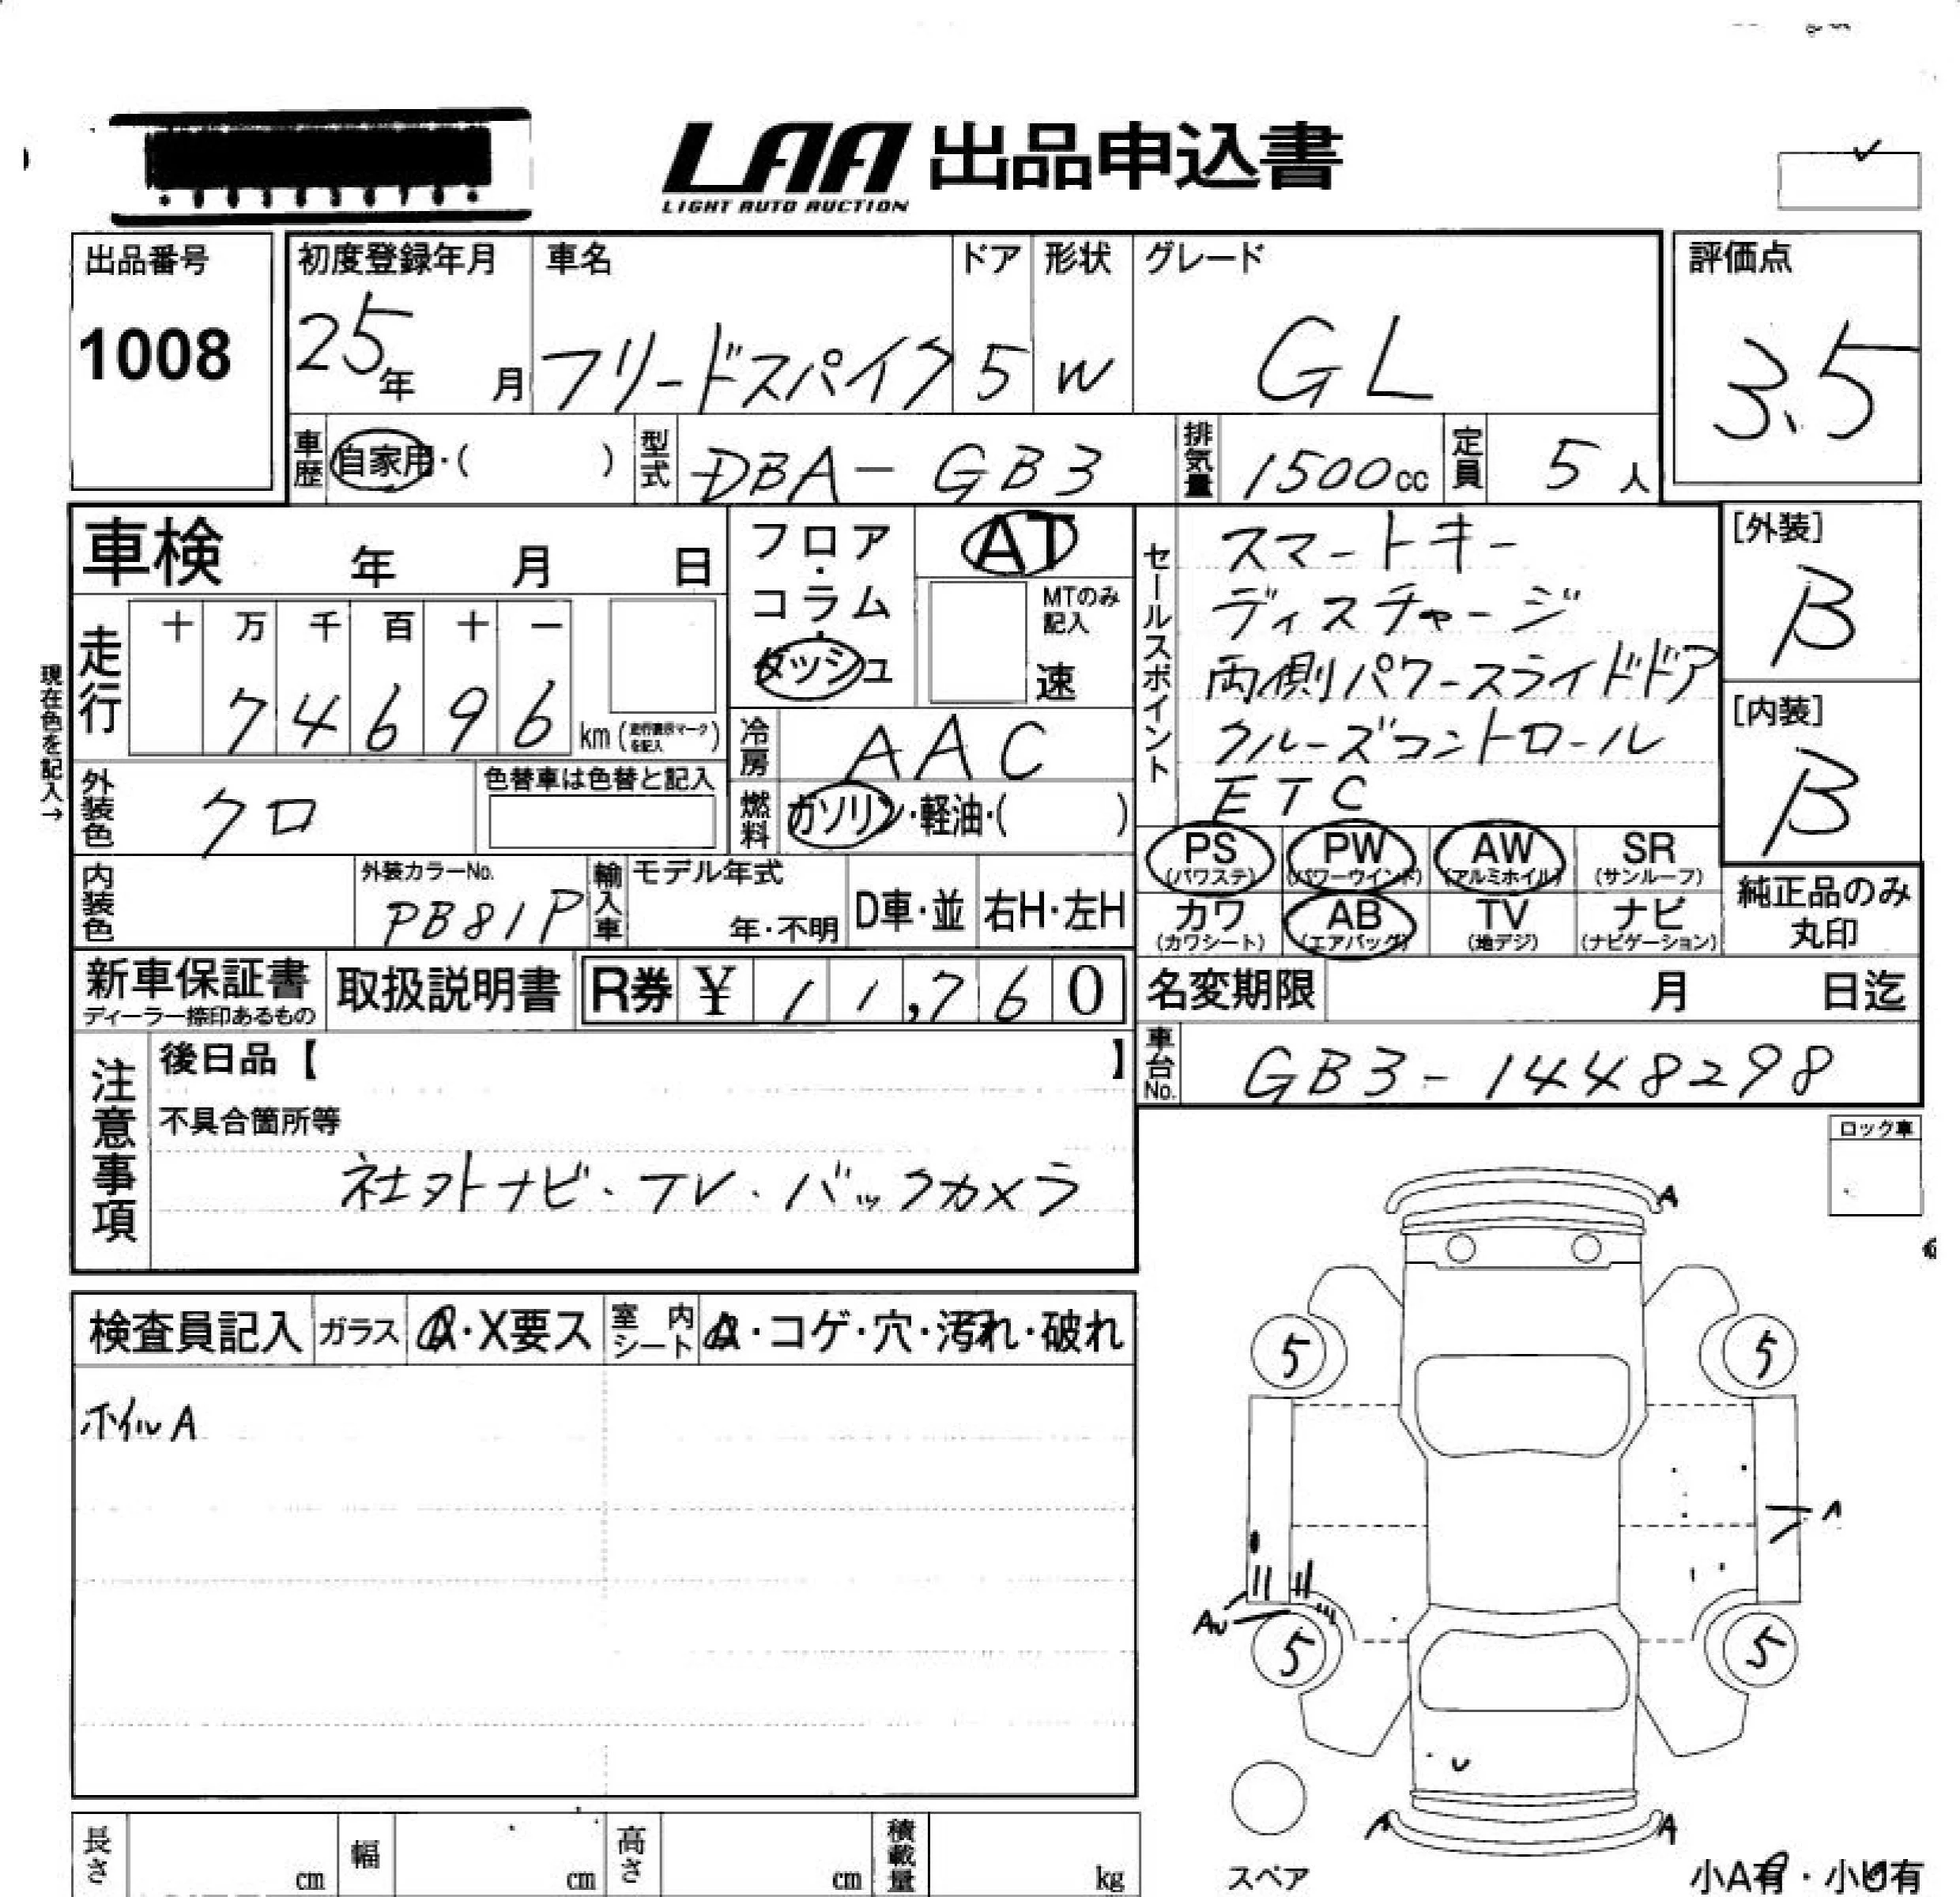 LAA 出品申込書
LIGHT AUTO AUCTION
出品番号
1008
初度登録年月
25年 月
車名
フリードスパイク
ドア
5
形状
W
グレード
GL
評価点
3.5
車歴 自家用・( )
型式 DBA-GB3
排気量 1500cc
定員 5人
車検 年 月 日
フロア・コラム・ダッシュ
AT
MTのみ記入
速
現在色を記入→
走行
十 万 千 百 十 一
7 4 6 9 6 km
冷房 AAC
外装色 クロ
色替車は色替と記入
燃料 ガソリン・軽油・( )
内装色
外装カラーNo.
PB81P
輸入車
モデル年式
年・不明
D車・並
右H・左H
セールスポイント
スマートキー
ディスチャージ
両側パワースライドドア
クルーズコントロール
ETC
[外装]
B
[内装]
B
PS (パワステ)
PW (パワーウインド)
AW (アルミホイル)
SR (サンルーフ)
カワ (カワシート)
AB (エアバッグ)
TV (地デジ)
ナビ (ナビゲーション)
純正品のみ丸印
新車保証書
ディーラー捺印あるもの
取扱説明書
R券 ¥ 11,760
名変期限 月 日迄
車台No. GB3-1448298
注意事項
後日品【 】
不具合箇所等
社外ナビ・TV・バックカメラ
ロック車
検査員記入
ガラス
・X要ス
室内シート
・コゲ・穴・汚れ・破れ
ホイルA
A
5 5
A
AU
5 5
U
A A
スペア
小A有・小U有
長さ cm
幅 cm
高さ cm
積載量 kg